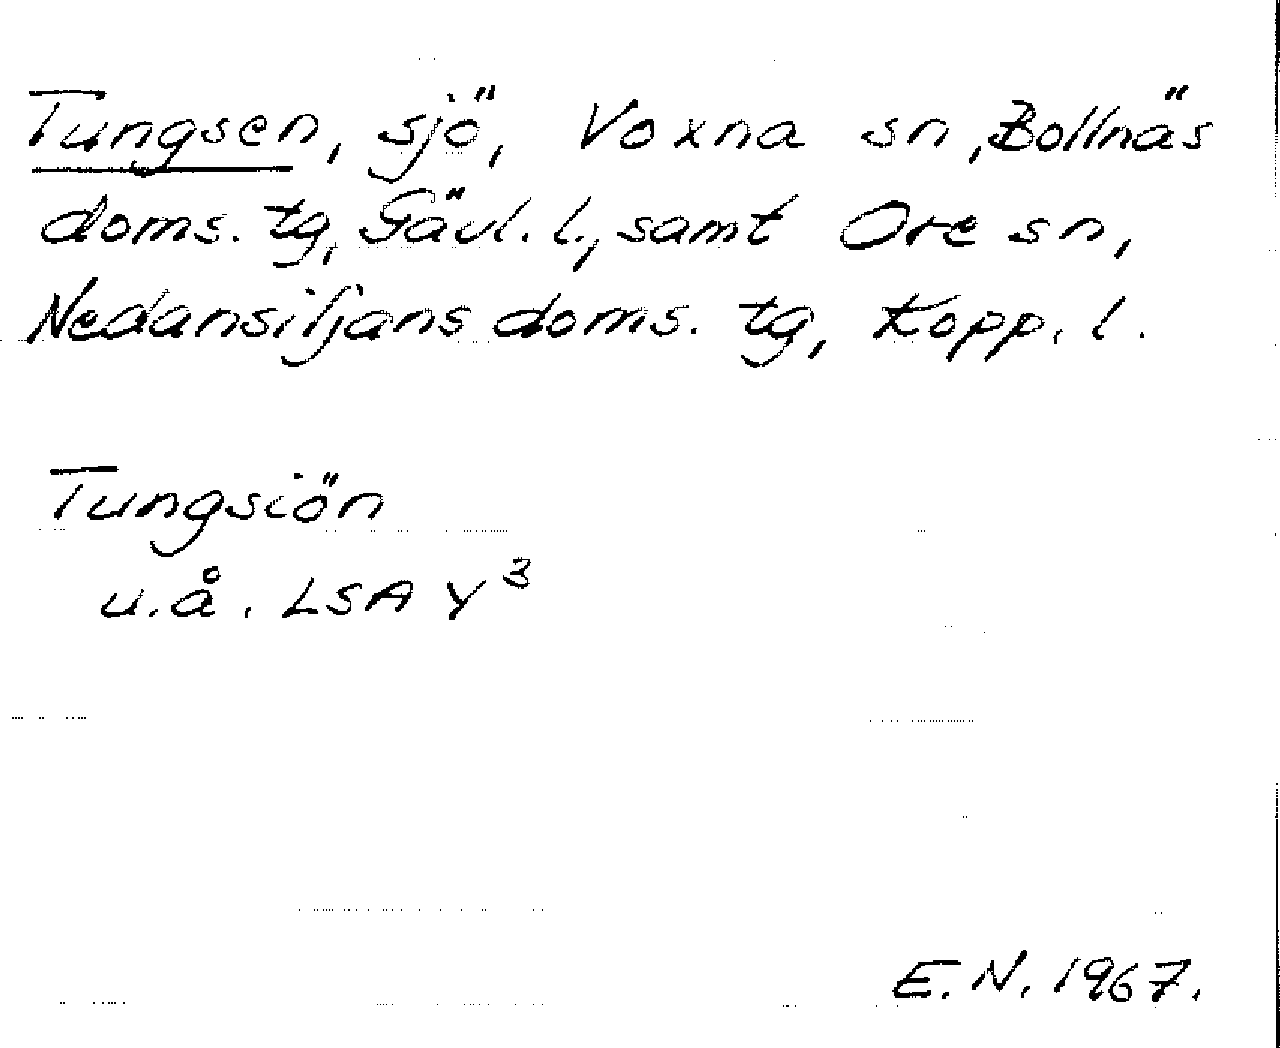 Tungsen, sjö, Voxna sn, Bollnäs
doms. tg, Gävl. l., samt Ore sn,
Nedansiljans doms. tg, Kopp. l.
Tungsiön
u.å. LSA Y³
E.N. 1967.